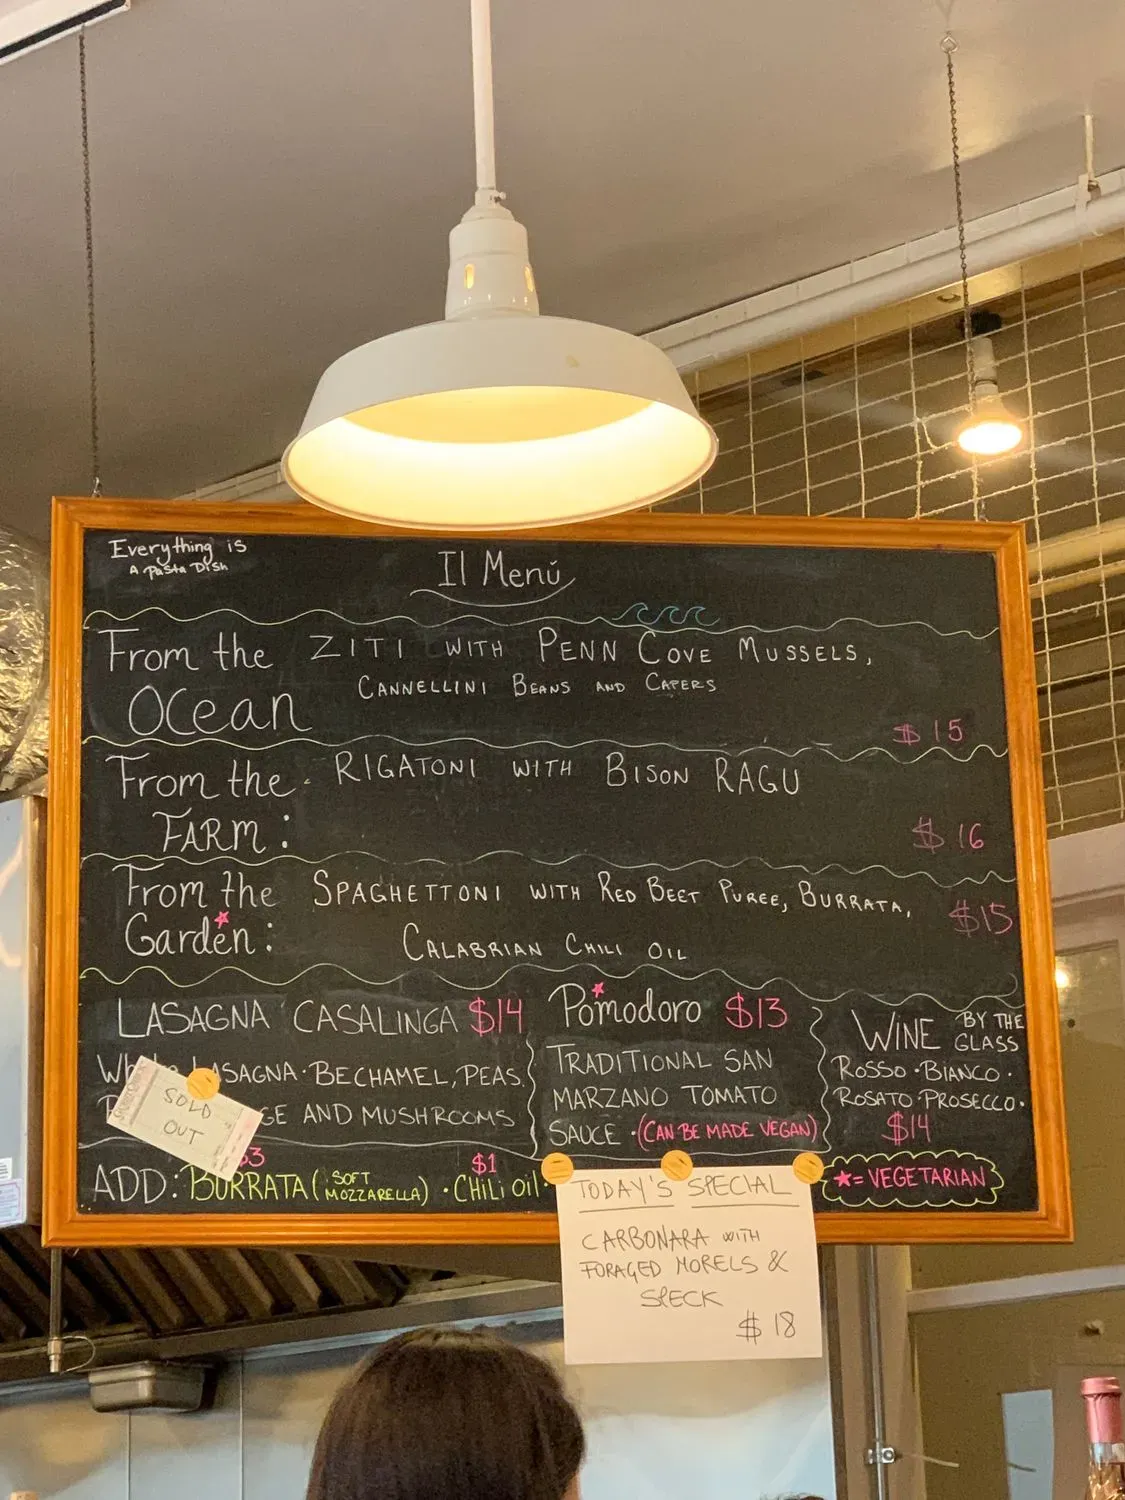 Everything is
A Pasta Dish
Il Menú
From the
Ocean
ZITI WITH PENN COVE MUSSELS,
CANNELLINI BEANS AND CAPERS
$15
From the
FARM:
RIGATONI WITH BISON RAGU
$16
From the
Garden:
SPAGHETTONI WITH RED BEET PUREE, BURRATA,
CALABRIAN CHILI OIL
$15
LASAGNA CASALINGA $14
LASAGNA · BECHAMEL, PEAS,
AND MUSHROOMS
SOLD
OUT
Pomodoro $13
TRADITIONAL SAN
MARZANO TOMATO
SAUCE · (CAN BE MADE VEGAN)
WINE BY THE
GLASS
ROSSO · BIANCO ·
ROSATO · PROSECCO ·
$14
$3
$1
ADD: BURRATA (SOFT
MOZZARELLA) · CHILI OIL ·
★ = VEGETARIAN
TODAY'S SPECIAL
CARBONARA WITH
FORAGED MORELS &
SPECK
$18